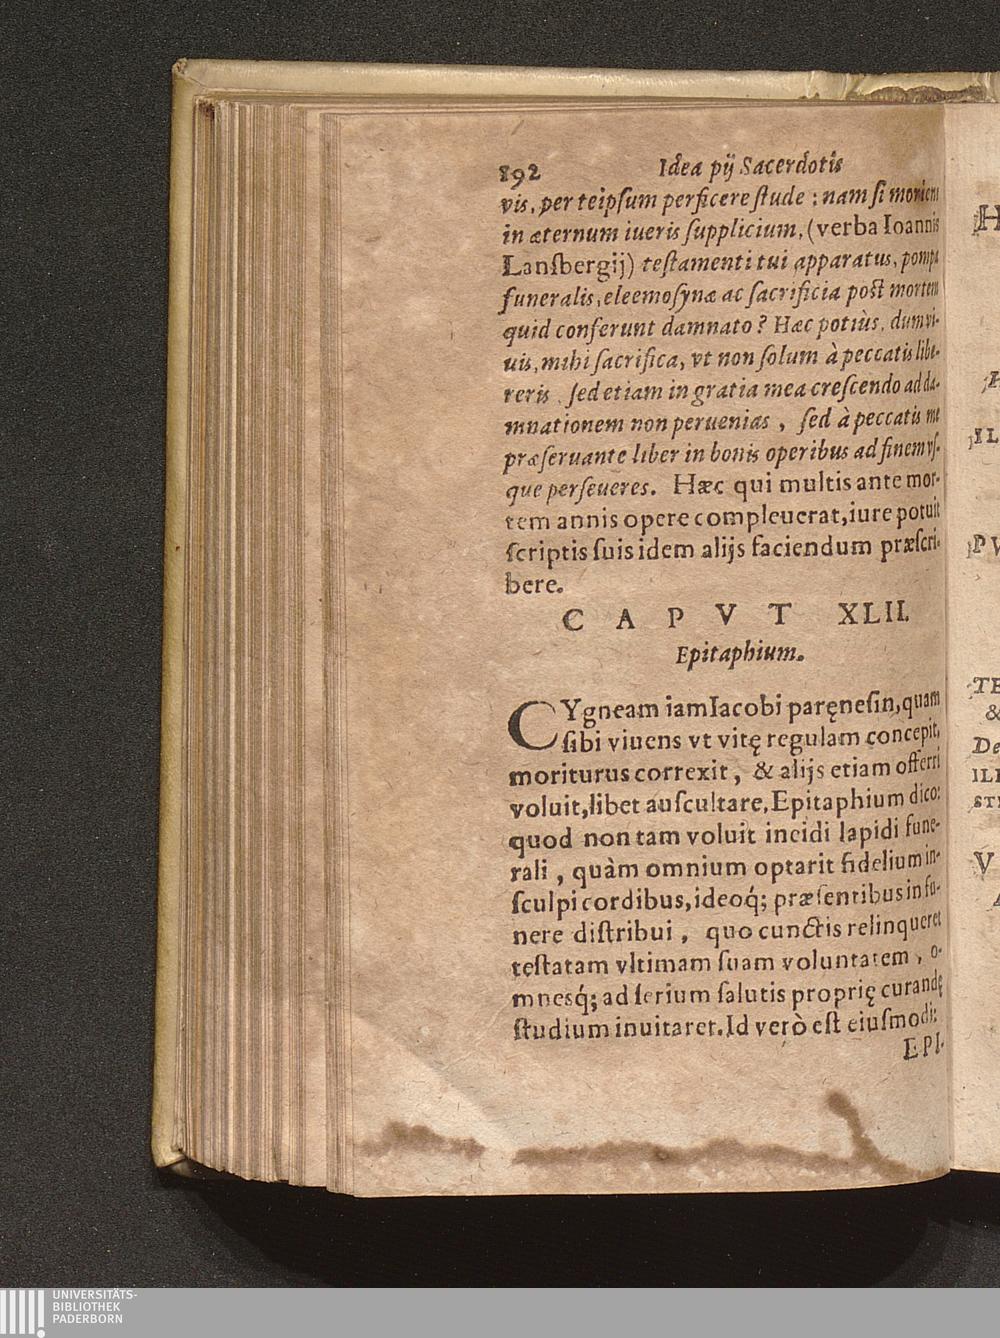 892 Idea pij Sacerdotis
vis, per teipſum perficere ſtude : nam ſi moriens
in æternum iueris ſupplicium, (verba Ioannis
Lanſbergij) teſtamenti tui apparatus, pompa
funeralis, eleemoſynæ ac ſacrificia poſt mortem
quid conferunt damnato? Hæc potiùs, dum vi-
uis, mihi ſacrifica, vt non ſolum à peccatis libe-
reris, ſed etiam in gratia mea creſcendo ad da-
mnationem non peruenias, ſed à peccatis me
præſeruante liber in bonis operibus ad finem vſ-
que perſeueres. Hæc qui multis ante mor-
tem annis opere compleuerat, iure potuit
ſcriptis ſuis idem alijs faciendum præſcri-
bere.
CAPVT XLII.
Epitaphium.
CYgneam iam Iacobi paręneſin, quam
ſibi viuens vt vitę regulam concepit,
moriturus correxit, & alijs etiam offerri
voluit, libet auſcultare, Epitaphium dico:
quod non tam voluit incidi lapidi fune-
rali, quàm omnium optarit fidelium in-
ſculpi cordibus, ideoq́; præſentibus in fu-
nere diſtribui, quo cunctis relinqueret
teſtatam vltimam ſuam voluntatem, o-
mnesq́; ad ſerium ſalutis proprię curandę
ſtudium inuitaret. Id verò eſt eiuſmodi:
EPI-
H
IL
PV
TE
&
De
ILL
STI
V
UNIVERSITÄTS-
BIBLIOTHEK
PADERBORN